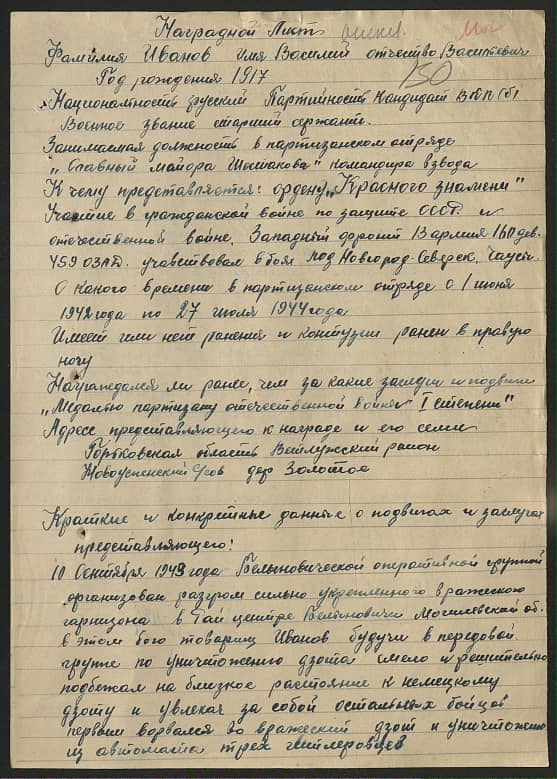 Наградной Лист
Фамилия Иванов Имя Василий отчество Васильевич
130
Год рождения 1917
Национальность русский Партийность Кандидат ВКП(б)
Военное звание старший сержант.
Занимаемая должность в партизанском отряде
"Славный майора Шестакова" командира взвода
К чему представляется: ордену "Красного знамени"
Участие в гражданской войне по защите СССР. и
отечественной войне. Западный 13 армия 160 див.
459 участвовал в боях под Новгород-Северск,
С какого времени в партизанском отряде с 1 июня
1942 года по 27 июля 1944 года
Имеет или нет ранения и контузии ранен в правую
ногу
Награждался ли ранее, чем за какие заслуги и подвиги
"Медалью партизану отечественной войны I степени"
Адресс представляющего к награде и его семьи
Горьковская область Ветлужский район
Новоуспенский с/сов дер Золотое
Краткие и конкретные данные о подвигах и заслугах
представляющего:
10 Сентября 1943 года оперативной группой
организован разгром сильно укрепленного вражеского
гарнизона в Рай центре Белыновичи Могилевской об.
в этом бою товарищ Иванов будучи в передовой
группе по уничтожению дзота смело и решительно
подбежал на близкое растояние к немецкому
дзоту и увлекая за собой остальных бойцов
первым ворвался во вражеский дзот и уничтожил
из автомата трех гитлеровцев